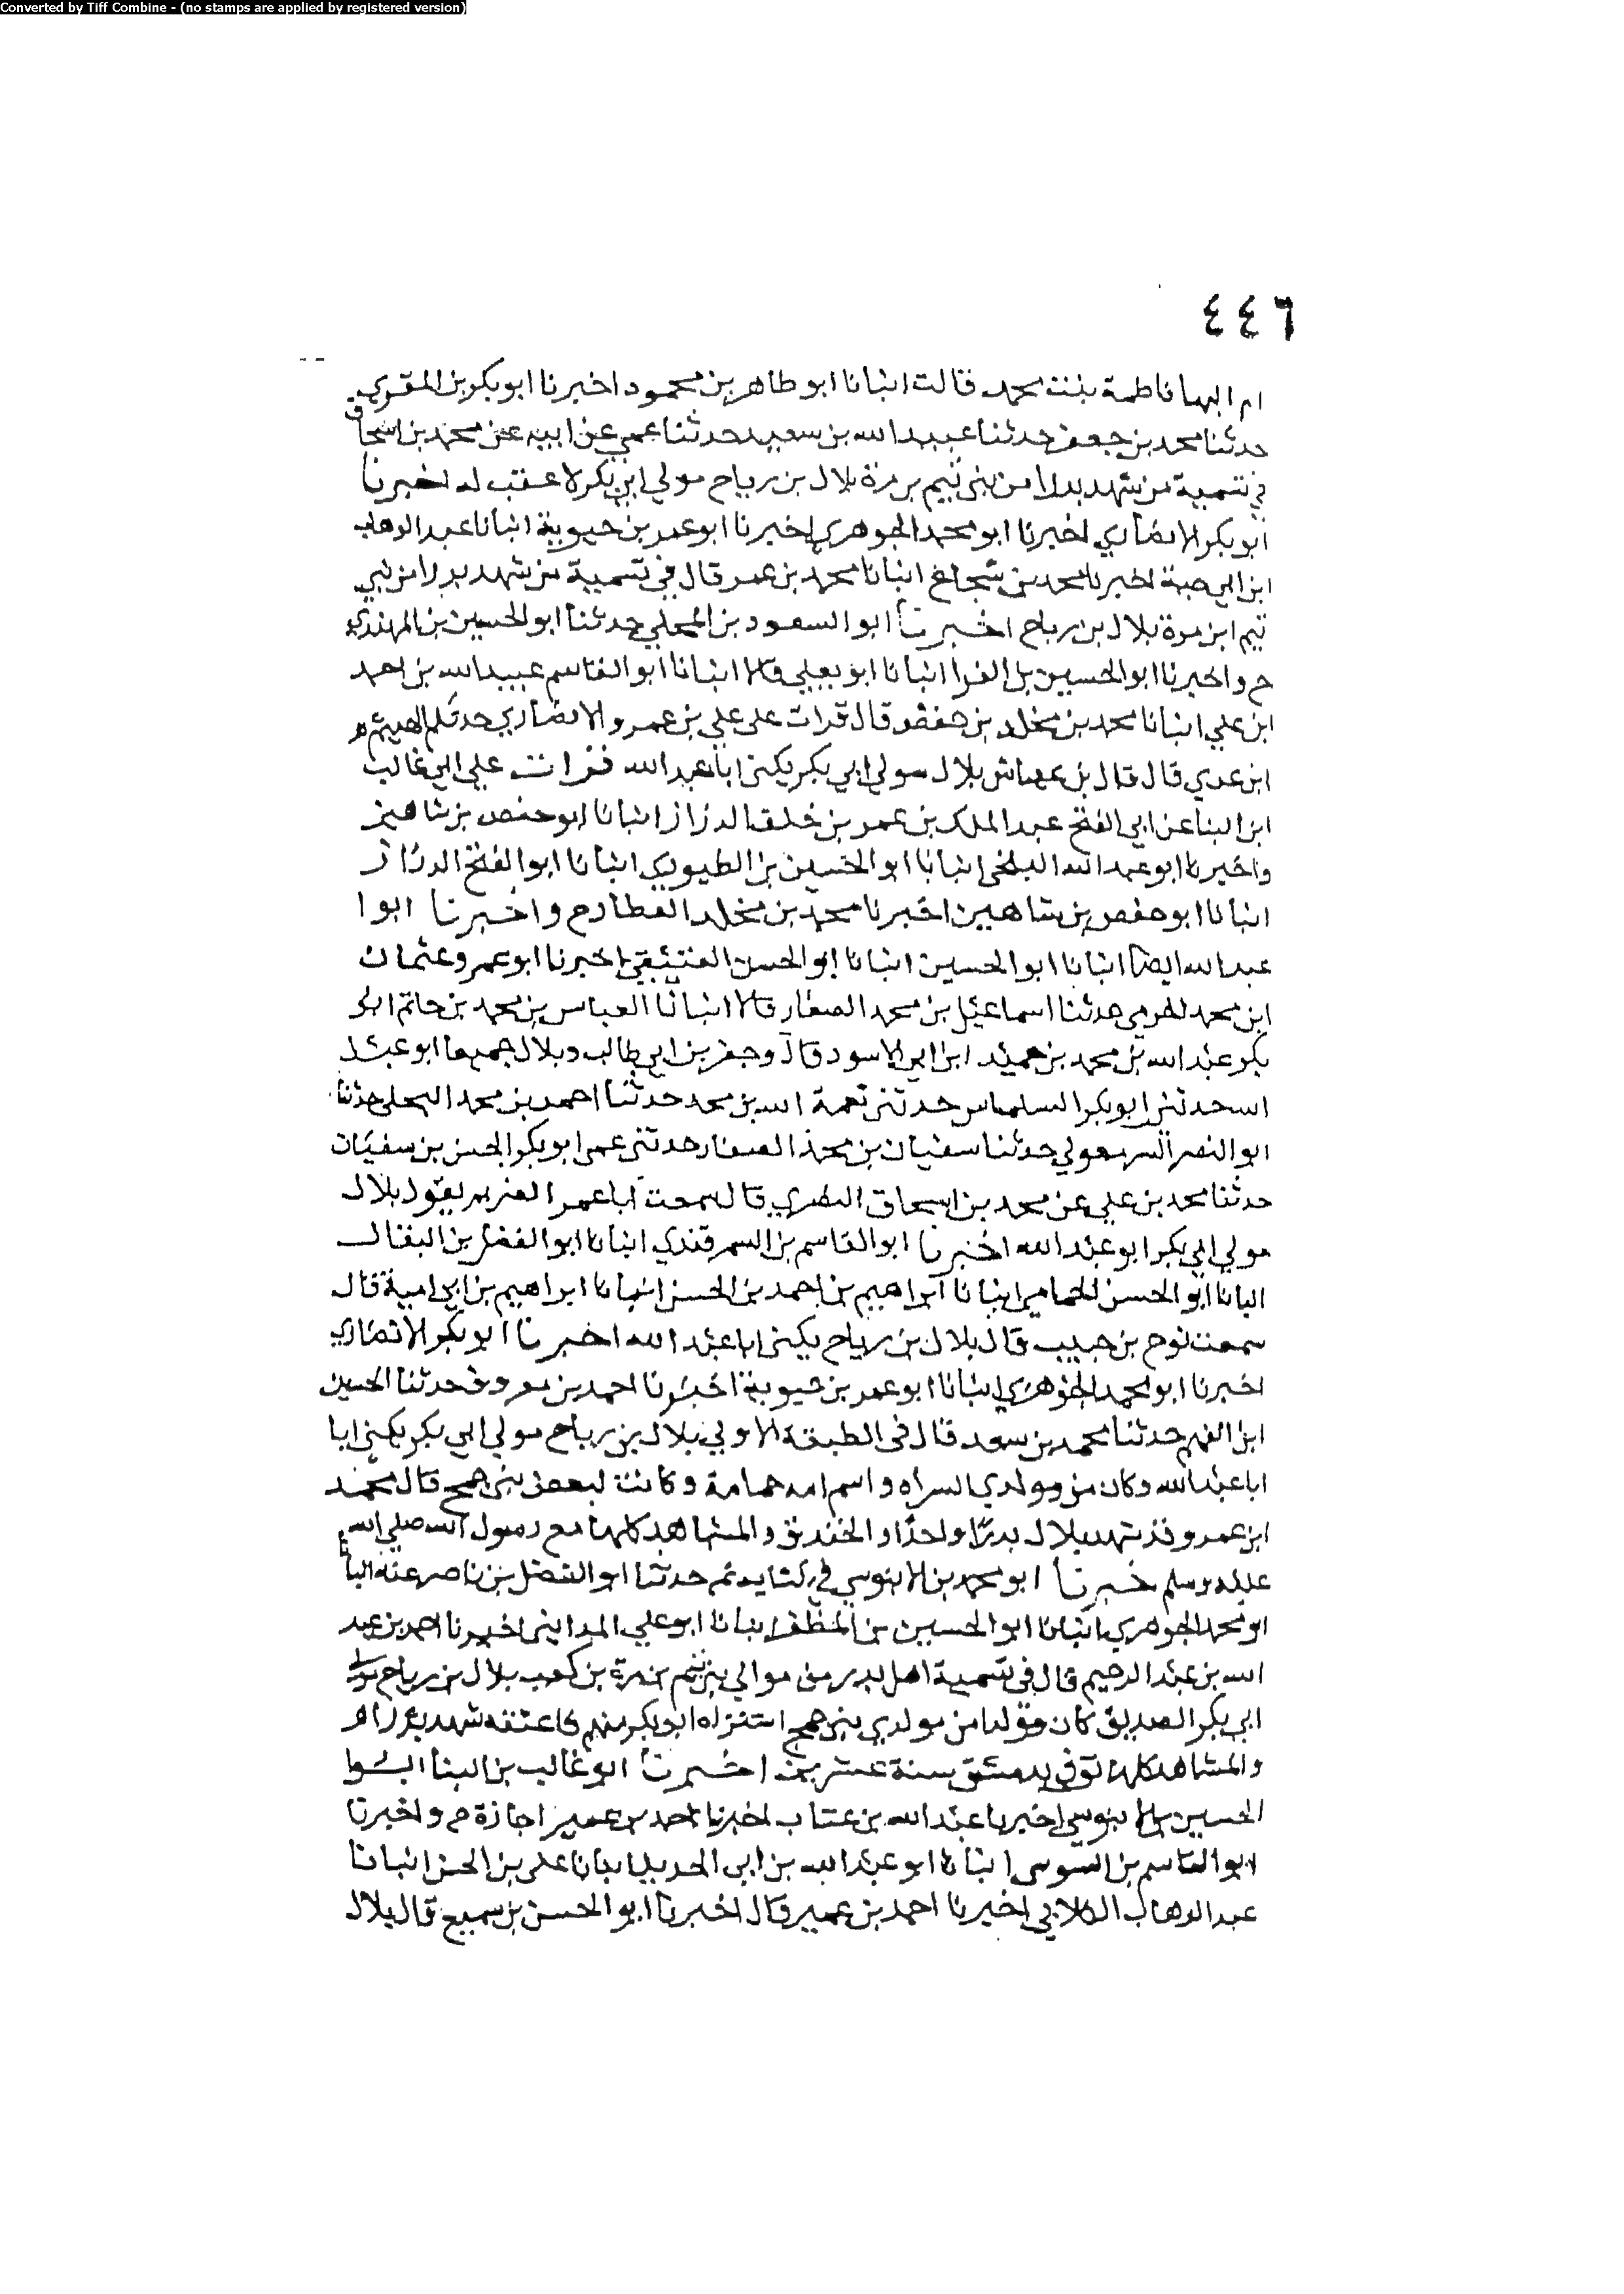 Converted by Tiff Combine - (no stamps are applied by registered version)
٤٤٦
ام البها فاطمة بنت محمد قالت انبانا ابو طاهر بن محمود اخبرنا ابو بكر بن المقري
حدثنا محمد بن جعفر حدثنا عبيد الله بن سعيد حدثنا عمي عن ابيه عن محمد بن اسحاق
في تسمية من شهد بدرا من بني تيم بن مرة بلال بن رباح مولي ابي بكر لا عقب له اخبرنا
ابو بكر الانصاري اخبرنا ابو محمد الجوهري اخبرنا ابو عمر بن حيوية انبانا عبد الوهاب
ابن ابي حية اخبرنا محمد بن شجاع انبانا محمد بن عمر قال في تسمية من شهد بدرا من بني
تيم ابن مرة بلال بن رباح اخبرنا ابو السعود بن المجلي حدثنا ابو الحسين بن المهتدي
ح واخبرنا ابو الحسين بن الفرا انبانا ابو يعلي قالا انبانا ابو القاسم عبيد الله بن احمد
ابن علي انبانا محمد بن مخلد بن حفص قال قرات علي علي بن عمرو الانصاري حدثكم الهيثم
ابن عدي قال قال بن عياش بلال مولي ابي بكر يكني ابا عبد الله قرات علي ابي غالب
ابن البنا عن ابي الفتح عبد الملك بن عمر بن خلف الرزاز انبانا ابو حفص بن شاهين
واخبرنا ابو عبد الله البلخي انبانا ابو الحسين بن الطيوري انبانا ابو الفتح الرزاز
انبانا ابو حفص بن شاهين اخبرنا محمد بن مخلد العطار ح واخبرنا ابوا
عبد الله ايضا انبانا ابو الحسين انبانا ابو الحسن العتيقي اخبرنا ابو عمرو عثمان
ابن محمد المخرمي حدثنا اسماعيل بن محمد الصفار قالا انبانا العباس بن محمد بن حاتم ابو
بكر عبد الله بن محمد بن حميد ابن ابي الاسود قال وجعفر بن ابي طالب وبلال جميعا ابو عبد
الله حدثني ابو بكر السلماسي حدثني نعمة الله بن محمد حدثنا احمد بن محمد البجلي حدثنا
ابو النضر حدثنا سفيان بن محمد الصفار حدثني عمي ابو بكر الحسن بن سفيان
حدثنا محمد بن علي عن محمد بن اسحاق البصري قال سمعت ابا عمر الضرير يقول بلال
مولي ابي بكر ابو عبد الله اخبرنا ابو القاسم بن السمرقندي انبانا ابو الفضل بن البقال
انبانا ابو الحسن الحمامي انبانا ابراهيم بن احمد بن الحسن انبانا ابراهيم بن ابي امية قال
سمعت نوح بن حبيب قال بلال بن رباح يكني ابا عبد الله اخبرنا ابو بكر الانصاري
اخبرنا ابو محمد الجوهري انبانا ابو عمر بن حيوية اخبرنا احمد بن معروف حدثنا الحسين
ابن الفهم حدثنا محمد بن سعد قال في الطبقة الاولي بلال بن رباح مولي ابي بكر يكني ابا
ابا عبد الله وكان من مولدي السراه واسم امه حمامة وكانت لبعض بني جمح قال محمد
ابن عمر وقد شهد بلال بدرا واحدا والخندق والمشاهد كلها مع رسول الله صلي الله
عليه وسلم خبرنا ابو محمد بن الابنوسي في كتابه ثم حدثنا ابو الفضل بن ناصر عنه انبا
ابو محمد الجوهري انبانا ابو الحسين بن المظفر انبانا ابو علي المدايني اخبرنا احمد بن عبد
الله بن عبد الرحيم قال في تسمية اهل بدر من موالي بني تيم بن مرة بن كعب بلال بن رباح مولي
ابي بكر الصديق كان مولدا من مولدي بني جمح اشتراه ابو بكر منهم فاعتقه شهد بدرا
والمشاهد كلها توفي بدمشق سنة عشرين اخبرنا ابو غالب بن البنا ابوا
الحسين بن الابنوسي اخبرنا عبد الله بن عتاب اخبرنا احمد بن عمير اجازة ح واخبرنا
ابو القاسم بن السوسي انبانا ابو عبد الله بن ابي الحديد انبانا علي بن الحسن انبانا
عبد الوهاب الكلابي اخبرنا احمد بن عمير قال اخبرنا ابو الحسن بن سميع قال بلال